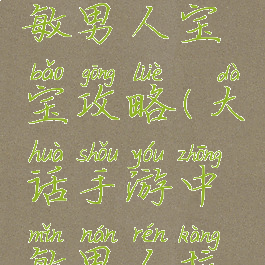 敏男人宝
bǎo gōng lüè dà
宝攻略(大
huà shǒu yóu zhōng
话手游中
mǐn nán rén kàng
敏男人抗